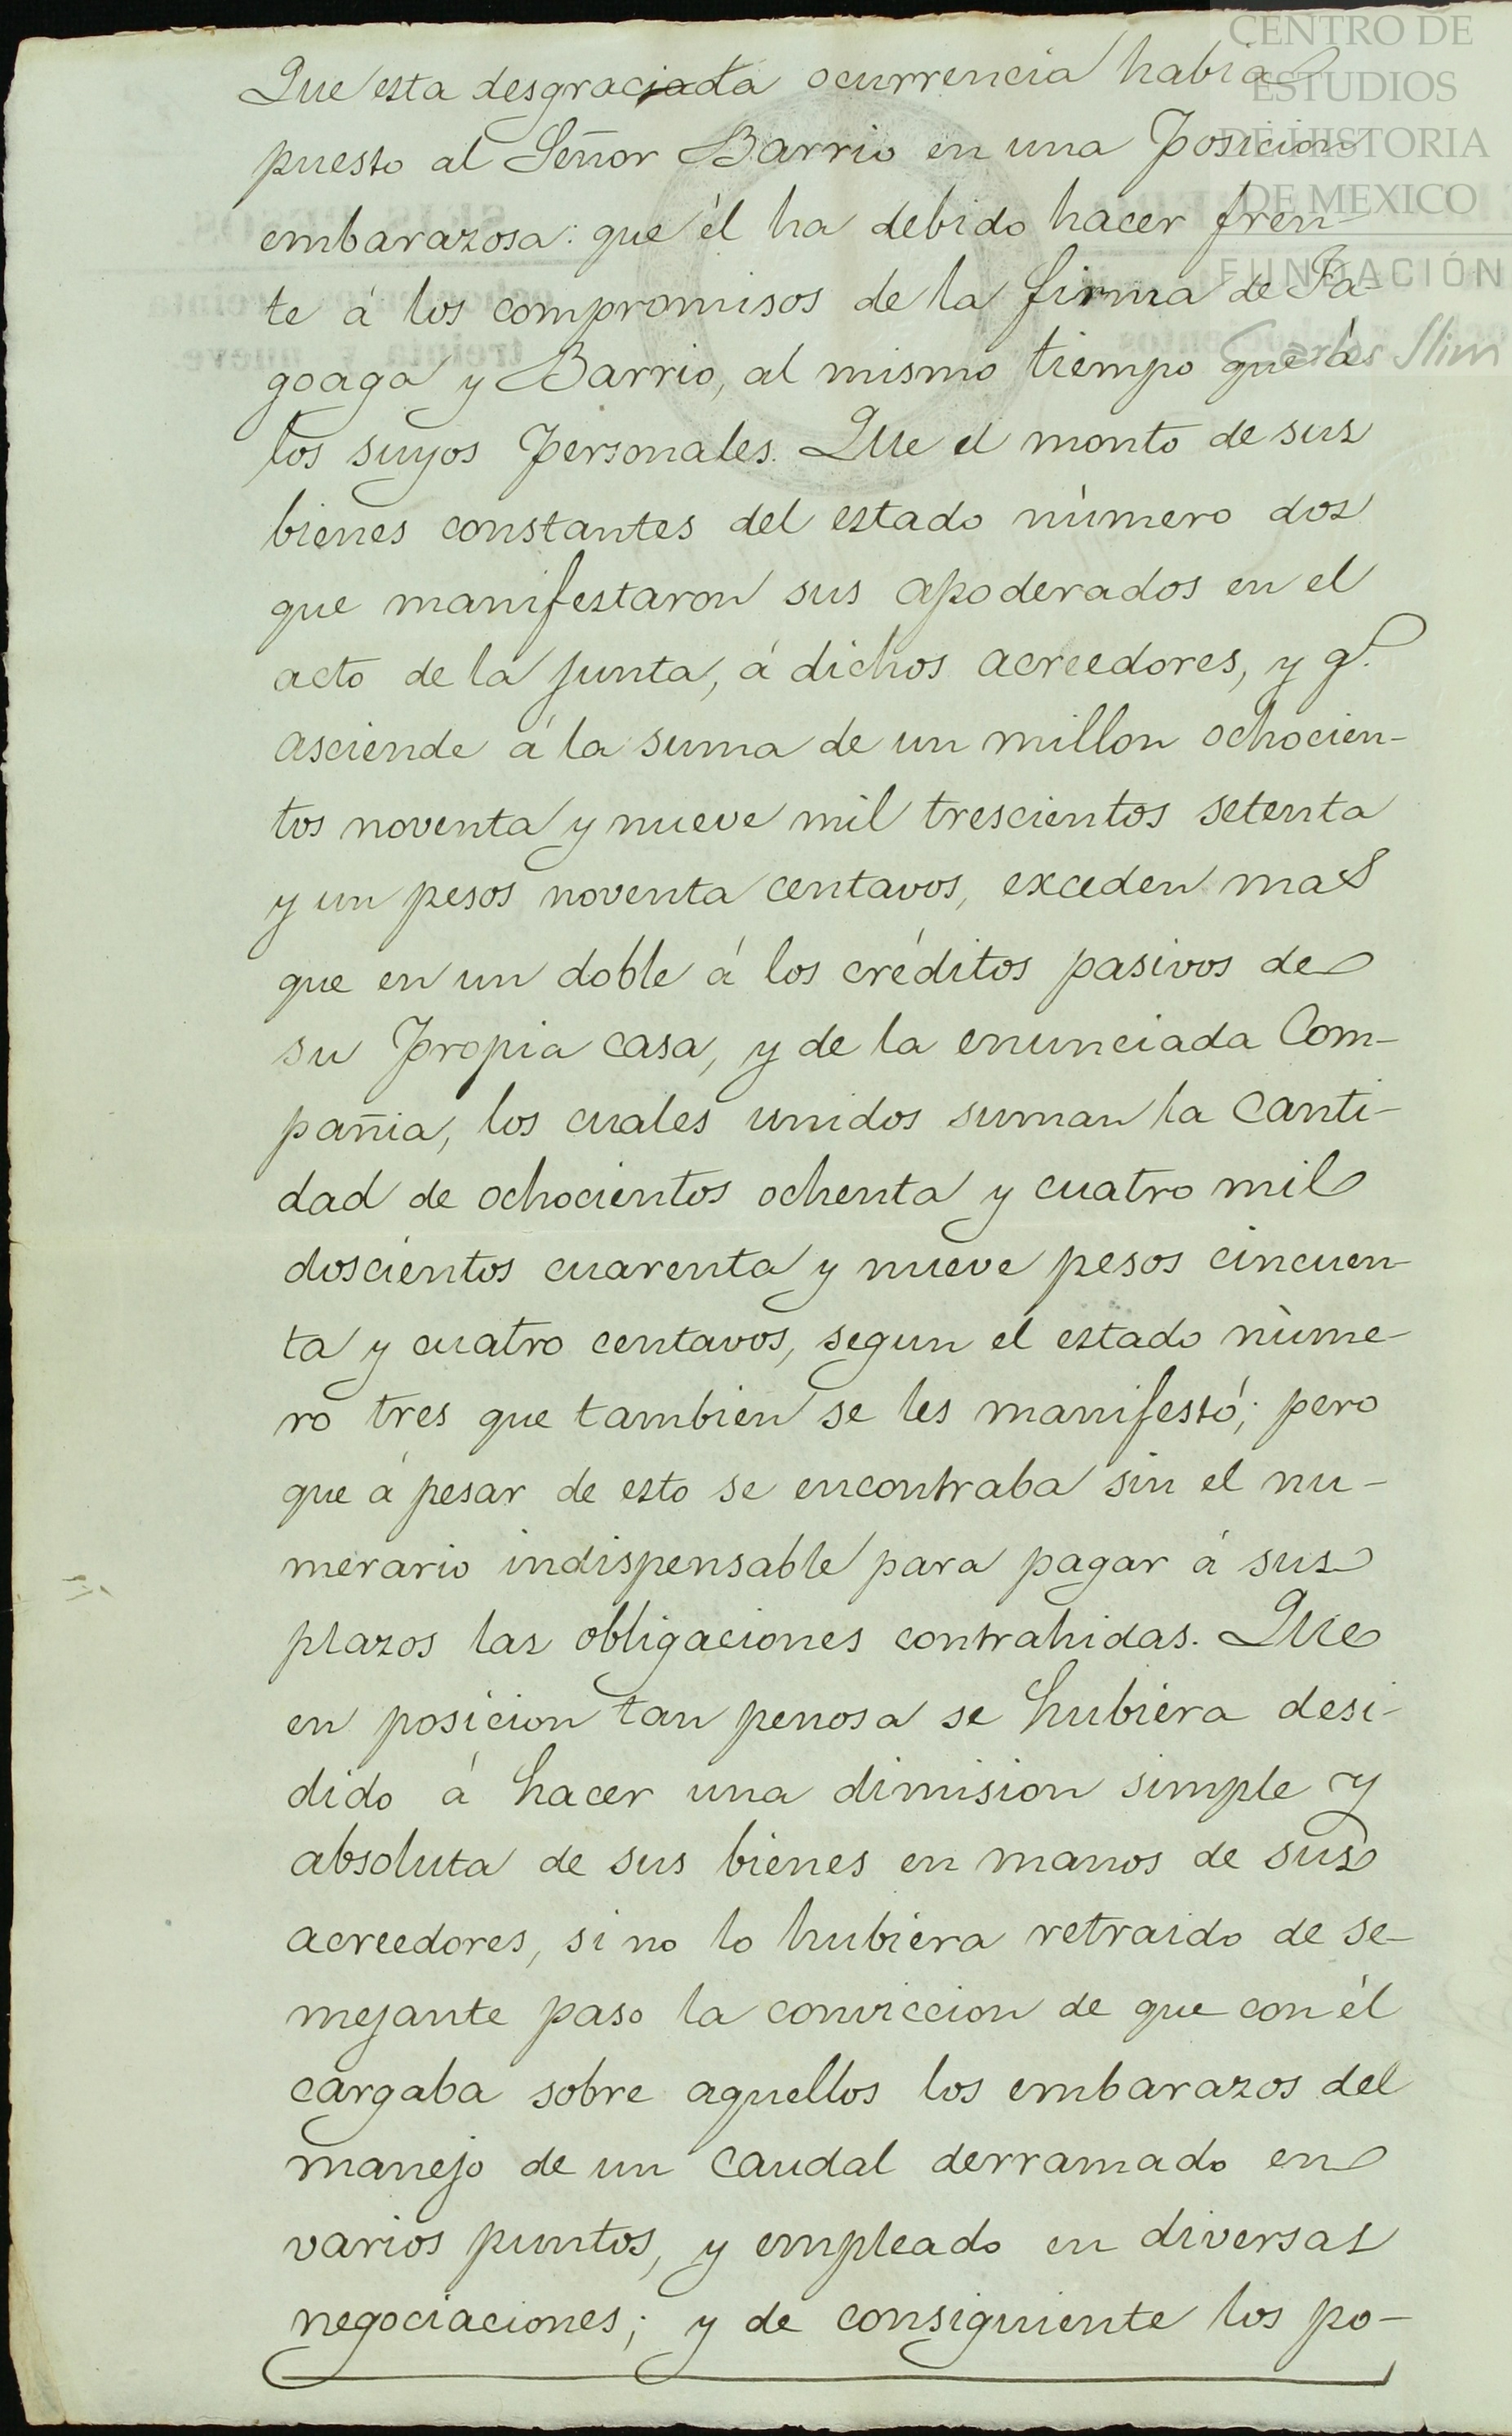 Que esta desgraciada ocurrencia habia
puesto al Señor Barrio en una posicion
embarazosa: que él ha debido hacer fren-
te á los compromisos de la firma de Fa-
goaga y Barrio, al mismo tiempo que á
los suyos personales. Que el monto de sus
bienes constantes del estado número dos
que manifestaron sus apoderados en el
acto de la junta, á dichos acreedores, y q.e
asciende á la suma de un millon ochocien-
tos noventa y nueve mil trescientos setenta
y un pesos noventa centavos, exceden mas
que en un doble á los créditos pasivos de
su propia casa, y de la enunciada Com-
pañia, los cuales unidos suman la canti-
dad de ochocientos ochenta y cuatro mil
doscientos cuarenta y nueve pesos cincuen-
ta y cuatro centavos, segun el estado núme-
ro tres que tambien se les manifestó; pero
que á pesar de esto se encontraba sin el nu-
merario indispensable para pagar á sus
plazos las obligaciones contrahidas. Que
en posicion tan penosa se hubiera desi-
dido á hacer una dimision simple y
absoluta de sus bienes en manos de sus
acreedores, si no lo hubiera retraido de se-
mejante paso la conviccion de que con él
cargaba sobre aquellos los embarazos del
manejo de un caudal derramado en
varios puntos, y empleado en diversas
negociaciones; y de consiguiente los po-
CENTRO DE
ESTUDIOS
DE HISTORIA
DE MEXICO
FUNDACIÓN
Carlos Slim